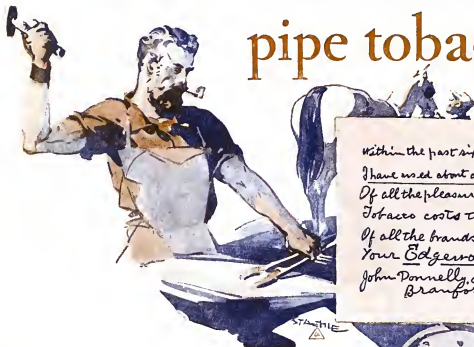 pipe toba
Within the past si
I have used about
Of all the pleasur
Tobacco costs t
Of all the brands
Your Edgewo
John Donnelly,
Branfo